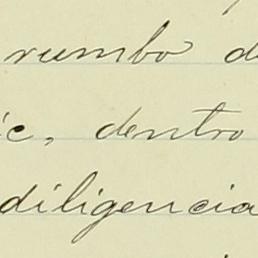 rumbo d
ic, dentro
diligencia